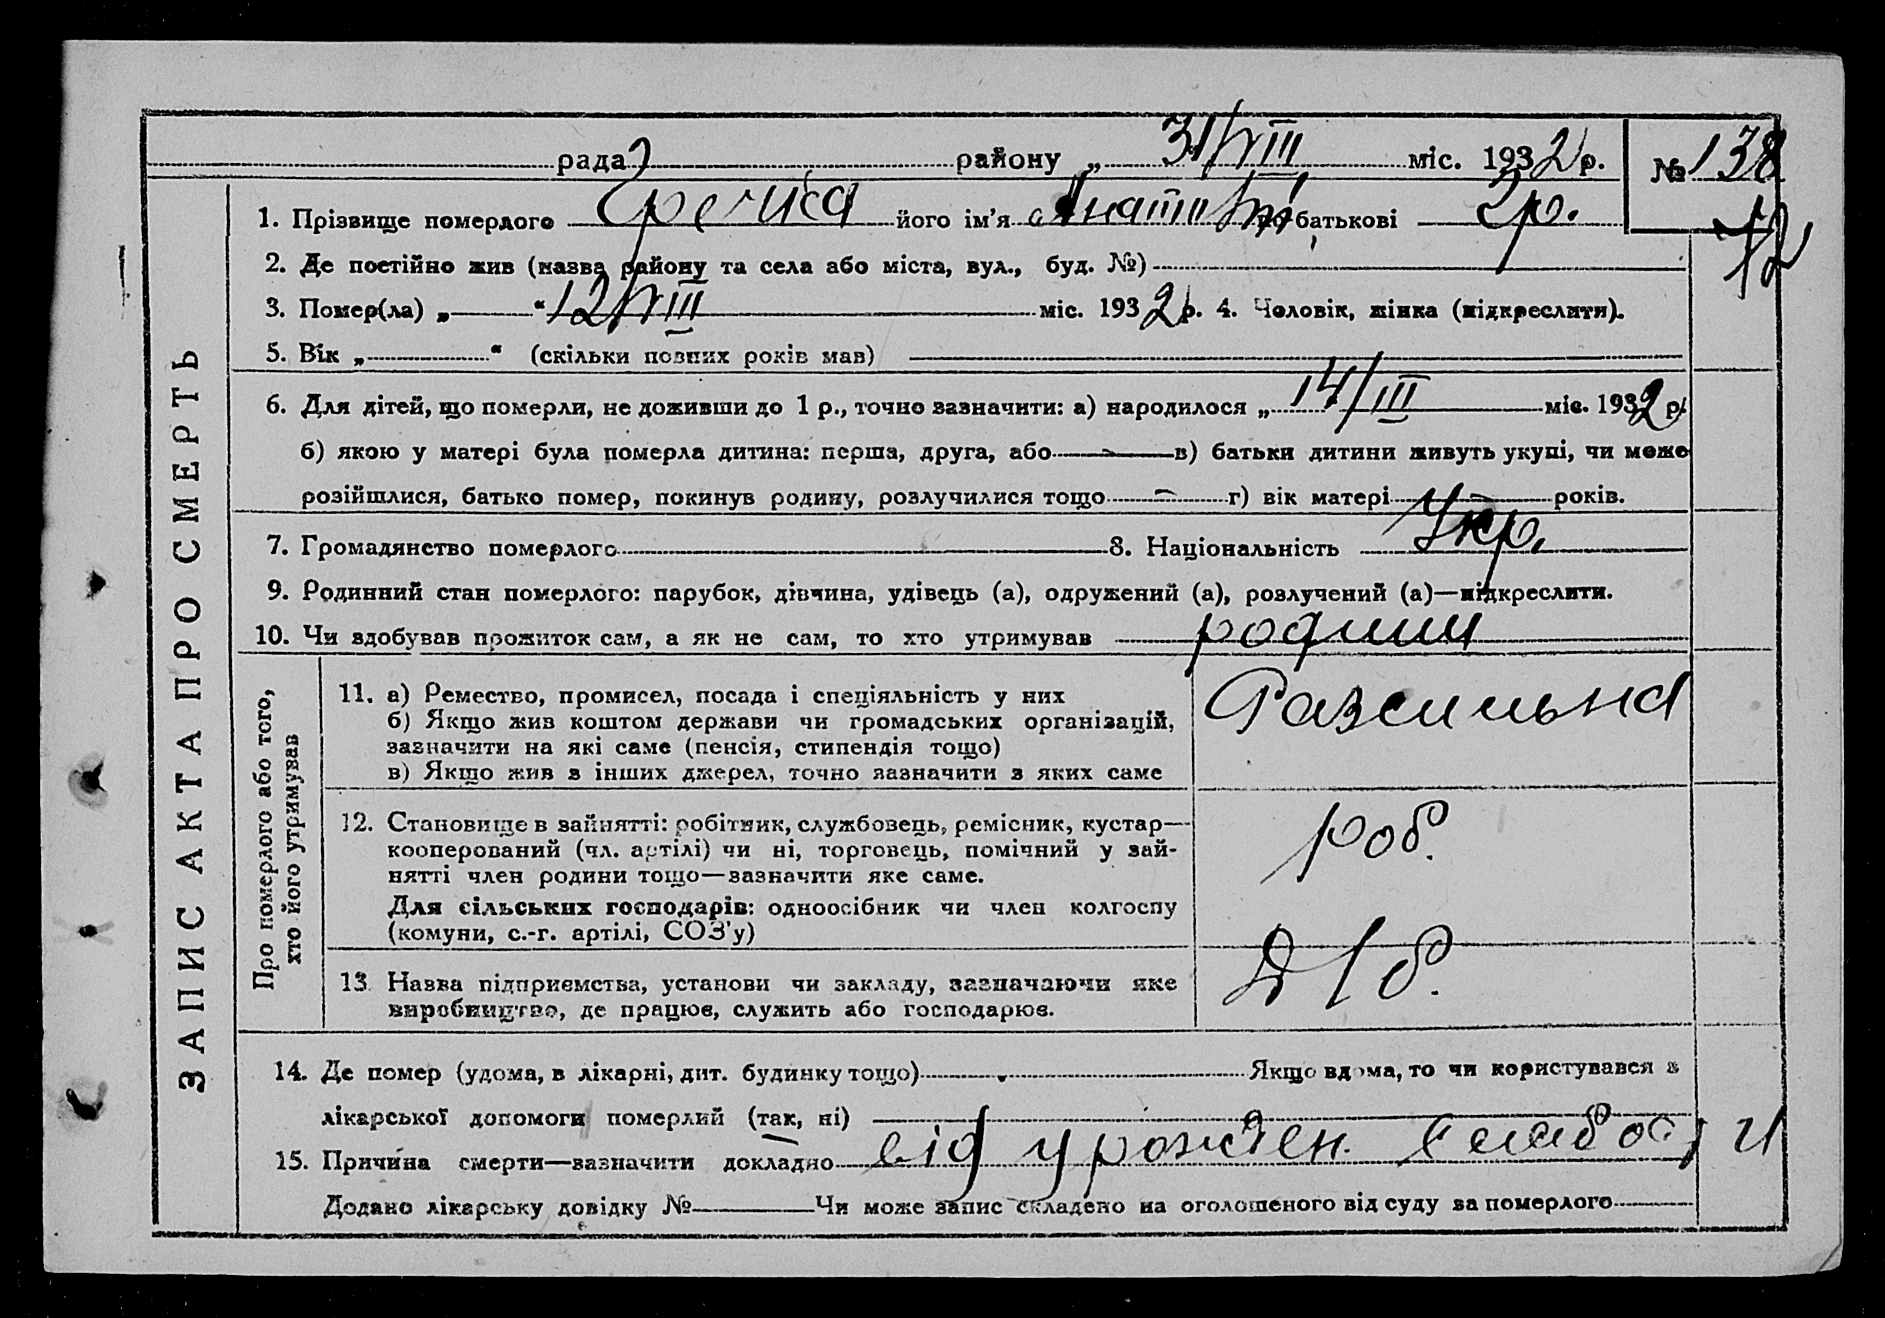 рада району „ 31/VIII міс. 1932 р. № 138
72
1. Прізвище померлого Гречка його ім'я Анатолій по батькові Гр.
2. Де постійно жив (назва району та села або міста, вул., буд. №)
3. Помер(ла) „ “ 12/VIII міс. 1932 р. 4. Чоловік, жінка (підкреслити).
5. Вік „ “ (скільки повних років мав)
6. Для дітей, що померли, не доживши до 1 р., точно зазначити: а) народилося „ 14/III міс. 1932 р.
б) якою у матері була померла дитина: перша, друга, або — в) батьки дитини живуть укупі, чи може
розійшлися, батько помер, покинув родину, розлучилися тощо — г) вік матері — років.
7. Громадянство померлого 8. Національність Укр.
9. Родинний стан померлого: парубок, дівчина, удівець (а), одружений (а), розлучений (а)—підкреслити.
10. Чи здобував прожиток сам, а як не сам, то хто утримував родини
ЗАПИС АКТА ПРО СМЕРТЬ
Про померлого або того,
хто його утримував
11. а) Ремество, промисел, посада і спеціяльність у них
б) Якщо жив коштом держави чи громадських організацій,
зазначити на які саме (пенсія, стипендія тощо)
в) Якщо жив з інших джерел, точно зазначити з яких саме
Разсильна
12. Становище в зайнятті: робітник, службовець, ремісник, кустар—
кооперований (чл. артілі) чи ні, торговець, помічний у зай-
нятті член родини тощо—зазначити яке саме.
Для сільських господарів: одноосібник чи член колгоспу
(комуни, с.-г. артілі, СОЗ'у)
роб.
13 Назва підприємства, установи чи закладу, зазначаючи яке
виробництво, де працює, служить або господарює.
14. Де помер (удома, в лікарні, дит. будинку тощо) Якщо вдома, то чи користувався з
лікарської допомоги померлий (так, ні)
15. Причина смерти—зазначити докладно від урожден. слабости
Додано лікарську довідку № Чи може запис складено на оголошеного від суду за померлого